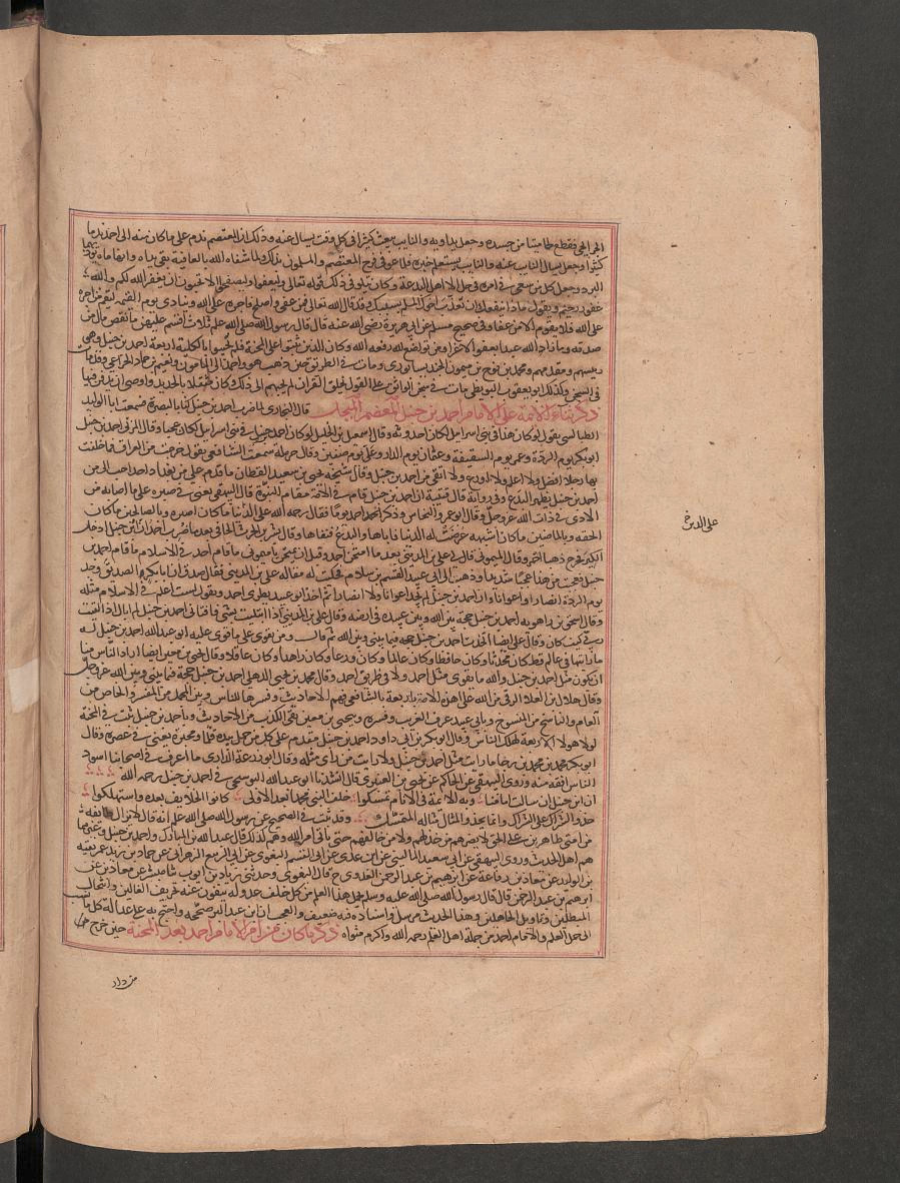 الجرايحي فقطع لحما ميتا من جسده وجعل يداويه والنايب يبعث كثيرا في كل وقت يسال عنه وذلك ان المعتصم ندم على ما كان منه الى احمد ندما
كثيرا وجعل يسال النايب عنه والنايب يستعلم خبره فلما عوفي فرح المعتصم والمسلمون بذلك ولما شفاه الله بالعافية بقي مدة وابهاماه يوذيهما
البرد وجعل كل من سعى في امره في حل الا اهل البدعة وكان يتلو في ذلك قوله تعالى وليعفوا وليصفحوا الا تحبون ان يغفر الله لكم والله
غفور رحيم ويقول ماذا ينفعك ان يعذب اخوك المسلم بسببك وقد قال الله تعالى فمن عفى واصلح فاجره على الله وينادى يوم القيمه ليقم من اجره
على الله فلا يقوم الا من عفا وفي صحيح مسلم عن ابي هريرة رضي الله عنه قال قال رسول الله صلى الله عليه ثلاث اقسم عليهن ما نقص مال من
صدقه وما زاد الله عبدا بعفو الا عزا ومن تواضع لله رفعه الله وكان الذين ثبتوا على المحنة فلم يجيبوا بالكلية اربعة احمد بن حنبل وهو
رييسهم ومقدمهم ومحمد بن نوح بن ميمون الجنديسابوري ومات في الطريق حين ذهب هو واحمد الى المامون ونعيم بن حماد الخزاعي وقد مات
في السجن وكذلك ابو يعقوب البويطي مات في سجن الواثق على القول بخلق القران لم يجبهم الى ذلك وكان مثقلا بالحديد واوصى ان يدفن فيها
ذكر ثناء الايمة على الامام احمد بن حنبل المعظم المبجل قال البخاري لما ضرب احمد بن حنبل كنا بالبصرة فسمعت ابا الوليد
الطيالسي يقول لو كان هذا في بني اسرايل لكان احدوثه وقال اسمعيل بن الخليل لو كان احمد بن حنبل في بني اسرايل لكان عجبا وقال المزني احمد بن حنبل
ابو بكر يوم الردة وعمر يوم السقيفة وعثمان يوم الدار وعلي يوم صفين وقال حرمله سمعت الشافعي يقول خرجت من العراق فما خلفت
بها رجلا افضل ولا اعلم ولا اورع ولا اتقى من احمد بن حنبل وقال شيخه يحيى بن سعيد القطان ما قدم علي من بغداد احد احب الي من
احمد بن حنبل وفي رواية قال قتيبة ان احمد بن حنبل قام في الامة مقام النبوة قال البيهقي يعني في صبره على ما اصابه من
الاذى في ذات الله عز وجل وقال ابو عمر النحاس وذكر احمد يوما فقال رحمه الله على الدنيا ما كان اصبره وبالصالحين ما كان
الحقه وبالماضين ما كان اشبهه عرضت له الدنيا فاباها والبدع فنفاها وقال بشر بن الحرث الحافي بعد ما ضرب احمد بن حنبل ادخل
الكير فخرج ذهبا احمر وقال الميموني قال لي علي بن المديني بعد ما امتحن احمد وقبل ان يمتحن يا ميموني ما قام احد في الاسلام ما قام احمد بن
حنبل فعجبت من هذا عجبا شديدا وذهبت الى ابي عبيد القسم بن سلام فحكيت له مقالة علي بن المديني فقال صدق ان ابا بكر الصديق وجد
يوم الردة انصارا واعوانا وان احمد بن حنبل لم يجد اعوانا ولا انصارا ثم اخذ ابو عبيد يطري احمد ويقول لست اعلم في الاسلام مثله
وقال اسحق بن راهويه احمد بن حنبل حجة بين الله وبين عبيده في ارضه وقال علي بن المديني اذا ابتليت بشي فافتاني احمد بن حنبل لم ابال اذا لقيت
ربي كيف كان وقال علي ايضا اتخذت احمد بن حنبل حجة فيما بيني وبين الله ثم قال ومن يقوى على ما قوي عليه ابو عبد الله احمد بن حنبل
ما رايتها في عالم قط كان محدثا وكان حافظا وكان عالما وكان ورعا وكان زاهدا وكان عاقلا وقال يحيى بن معين ايضا اراد الناس منا
ان نكون مثل احمد بن حنبل والله ما نقوى مثل احمد ولا في طريق احمد وقال محمد بن يحيى الذهلي احمد بن حنبل حجة فيما بيني وبين الله عز وجل
وقال هلال بن العلاء الرقي من الله على هذه الامة باربعة بالشافعي فهم الاحاديث وفسرها للناس وبين المجمل من المفسر والخاص من
العام والناسخ من المنسوخ وبابي عبيد عرف الغريب وفسره وبيحيى بن معين نفى الكذب من الاحاديث وباحمد بن حنبل ثبت في المحنة
لولا هولا الاربعة لهلك الناس وقال ابو بكر بن ابي داود احمد بن حنبل مقدم على كل من حمل بيده قلما ومحبرة يعني في عصره وقال
ابو بكر محمد بن محمد بن رجا ما رايت مثل احمد بن حنبل ولا رايت من راى مثله وقال ابو زرعة الرازي ما اعرف في اصحابنا اسود
الراس افقه منه وروى البيهقي عن الحاكم عن يحيى بن العنبري قال انشدنا ابو عبد الله البوسنجي في احمد بن حنبل رحمه الله
ان ابن حنبل ان سالت امامنا وبه الايمة في الانام تمسكوا خلف النبي محمدا بعد الاولى كانوا الخلايف بعده واستهلكوا
حذو الشراك على الشراك وانما يحذو المثال مثاله المتمسك وقد ثبت في الصحيح عن رسول الله صلى الله عليه انه قال لا تزال طايفة
من امتي ظاهرين على الحق لا يضرهم من خذلهم ولا من خالفهم حتى ياتي امر الله وهم كذلك قال عبد الله بن المبارك واحمد بن حنبل وغيرهما
هم اهل الحديث وروى البيهقي عن ابي سعيد الماليني عن ابن عدي عن ابي القسم البغوي عن ابي الربيع الزهراني عن حماد بن زيد عن بقية
بن الوليد عن معاذ بن رفاعة عن ابرهيم بن عبد الرحمن العذري ح قال البغوي وحدثني زياد بن ايوب ثنا مبشر عن معاذ عن
ابرهيم بن عبد الرحمن قال قال رسول الله صلى الله عليه وسلم يحمل هذا العلم من كل خلف عدوله ينفون عنه تحريف الغالين وانتحال
المبطلين وتاويل الجاهلين وهذا الحديث مرسل واسناده فيه ضعيف والعجب ان ابن عبد البر صححه واحتج به على عدالة كل من نسب
الى حمل العلم والامام احمد من جملة اهل العلم رحمه الله واكرم مثواه ذكر ما كان من امر الامام احمد بعد المحنة حين خرج من
من دار